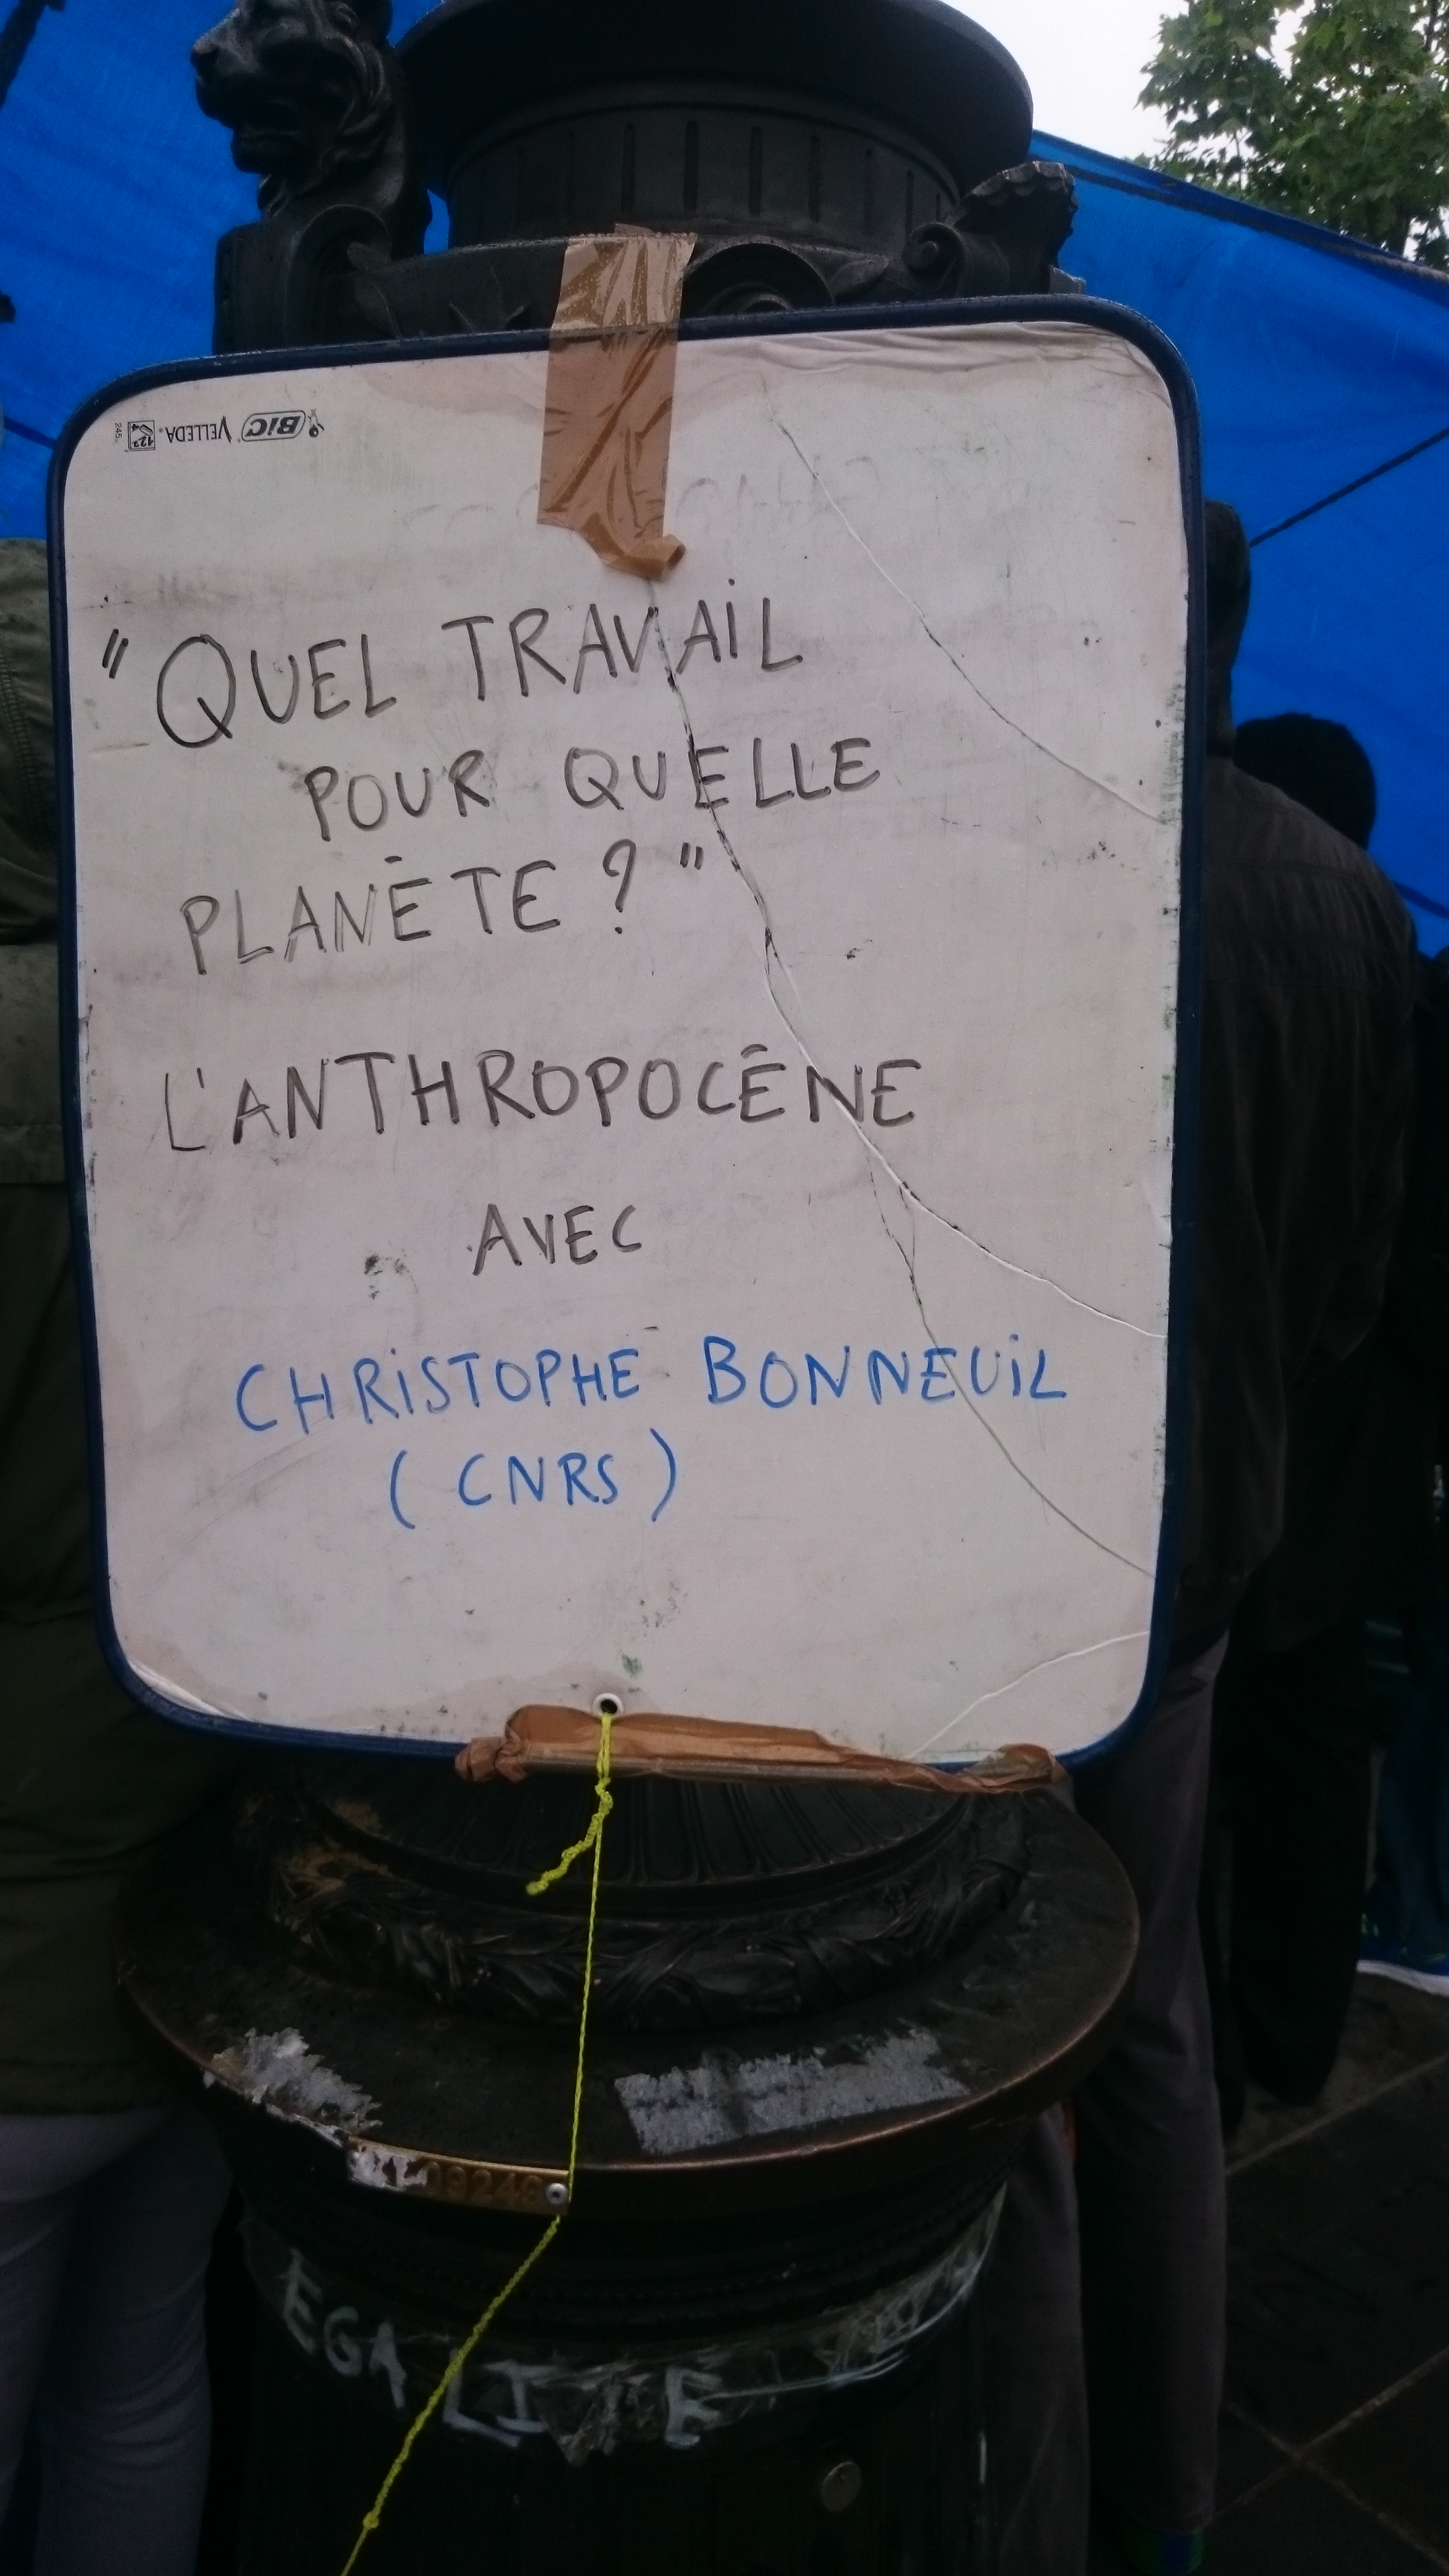 BiC VELLEDA
"QUEL TRAVAiL
POUR QUELLE
PLANÈTE ? "
L'ANTHROPOCÈNE
AVEC
CHRiSTOPHE BONNEUiL
( CNRS )
EGALI E